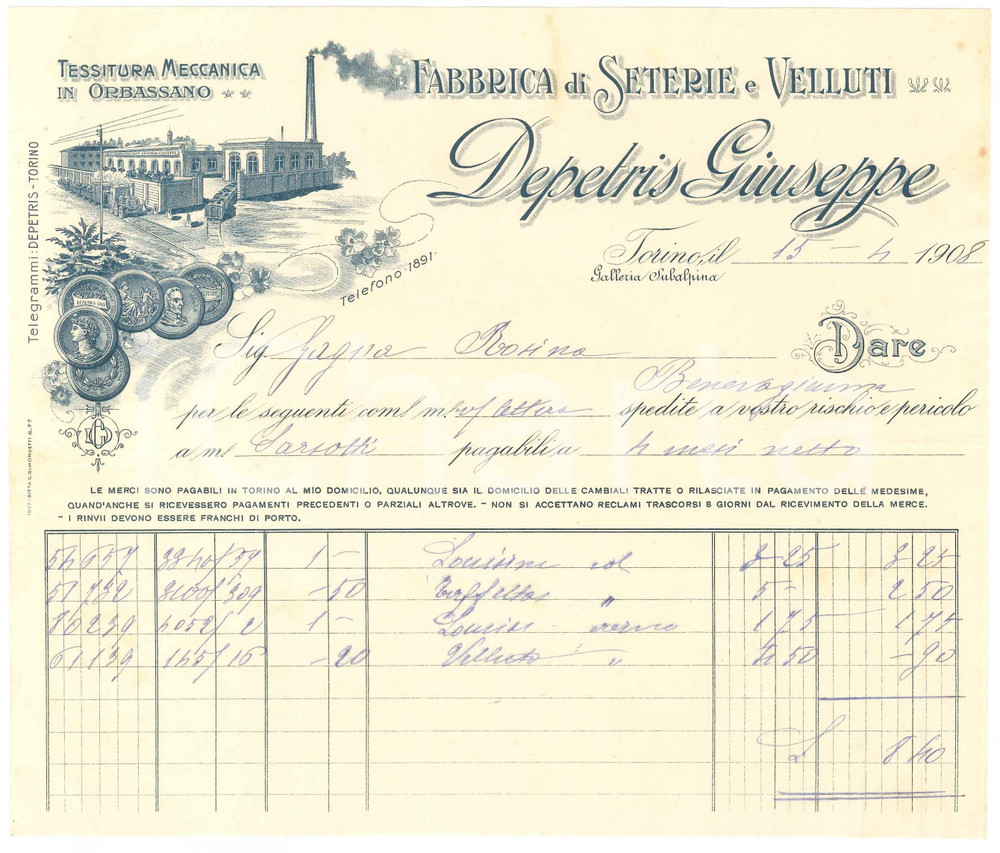 TESSITURA MECCANICA
IN ORBASSANO
FABBRICA di SETERIE e VELLUTI
Depetris Giuseppe
Telegrammi: DEPETRIS - TORINO
Telefono: 1891
Torino, il 15 - 4 1908
Galleria Subalpina
Sig. Gagna Rosina Dare
Benevagienna
per le seguenti com spedite a vostro rischio e pericolo
a m/ Sarsotti pagabili a 4 mesi netto
LE MERCI SONO PAGABILI IN TORINO AL MIO DOMICILIO, QUALUNQUE SIA IL DOMICILIO DELLE CAMBIALI TRATTE O RILASCIATE IN PAGAMENTO DELLE MEDESIME,
QUAND'ANCHE SI RICEVESSERO PAGAMENTI PRECEDENTI O PARZIALI ALTROVE. - NON SI ACCETTANO RECLAMI TRASCORSI 8 GIORNI DAL RICEVIMENTO DELLA MERCE.
- I RINVII DEVONO ESSERE FRANCHI DI PORTO.
54657 3340/59 1 - Louisine col 3 25 3 25
51732 3100/309 - 50 Taffetas " 5 - 2 50
80239 4052/2 1 - Louisine 1 75 1 75
61139 145/16 - 20 Velluto " 4 50 - 90
L 8 40